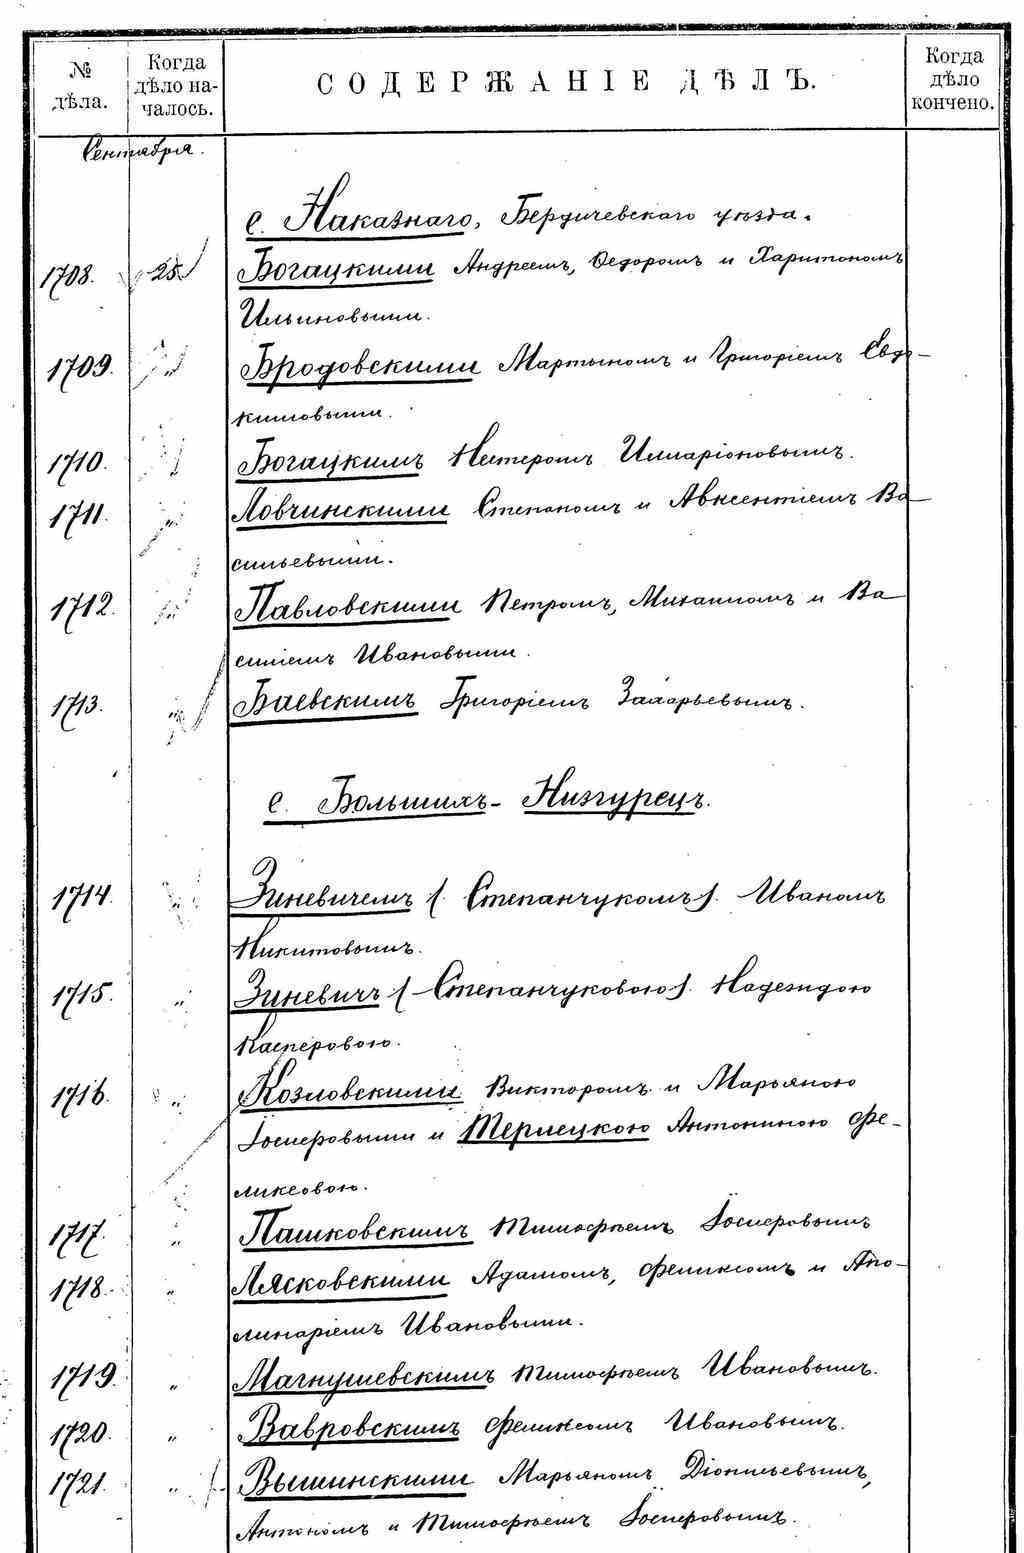 № дѣла. Когда дѣло началось. СОДЕРЖАНІЕ ДѢЛЪ. Когда дѣло кончено.
Сентября.
с. Наказнаго, Бердичевскаго уѣзда.
1708. 25 Богацкими Андреемъ, Ѳедоромъ и Харитономъ
Ильиновыми.
1709. " Бродовскими Мартыномъ и Григоріемъ Евдо-
кимовыми.
1710. " Богацкимъ Нестеромъ Илларіоновымъ.
1711. " Ловчинскими Степаномъ и Авксентіемъ Ва-
сильевыми.
1712. " Павловскими Петромъ, Михаиломъ и Ва-
силіемъ Ивановыми.
1713. " Баевскимъ Григоріемъ Захарьевымъ.
с. Большихъ-Низгурецъ.
1714. " Зиневичемъ (Степанчукомъ). Иваномъ
Никитовымъ.
1715. " Зиневичъ (Степанчуковою). Надеждою
Касперовою.
1716. " Козловскими Викторомъ и Марьяною
Іосифовыми и Терлецкою Антониною Фе-
ликсовою.
1717. " Пашковскимъ Тимофѣемъ Іосифовымъ
1718. " Лясковскими Адамомъ, Феликсомъ и Апо-
линаріемъ Ивановыми.
1719. " Магнушевскимъ Тимофѣемъ Ивановымъ.
1720. " Вавровскимъ Феликсомъ Ивановымъ.
1721. " Вышинскими Марьяномъ Діонисьевымъ,
Антономъ и Тимофѣемъ Іосифовымъ.